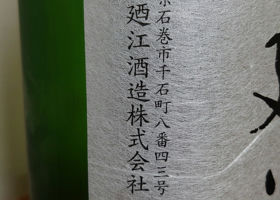 石巻市千石町八番四三号
廼江酒造株式会社